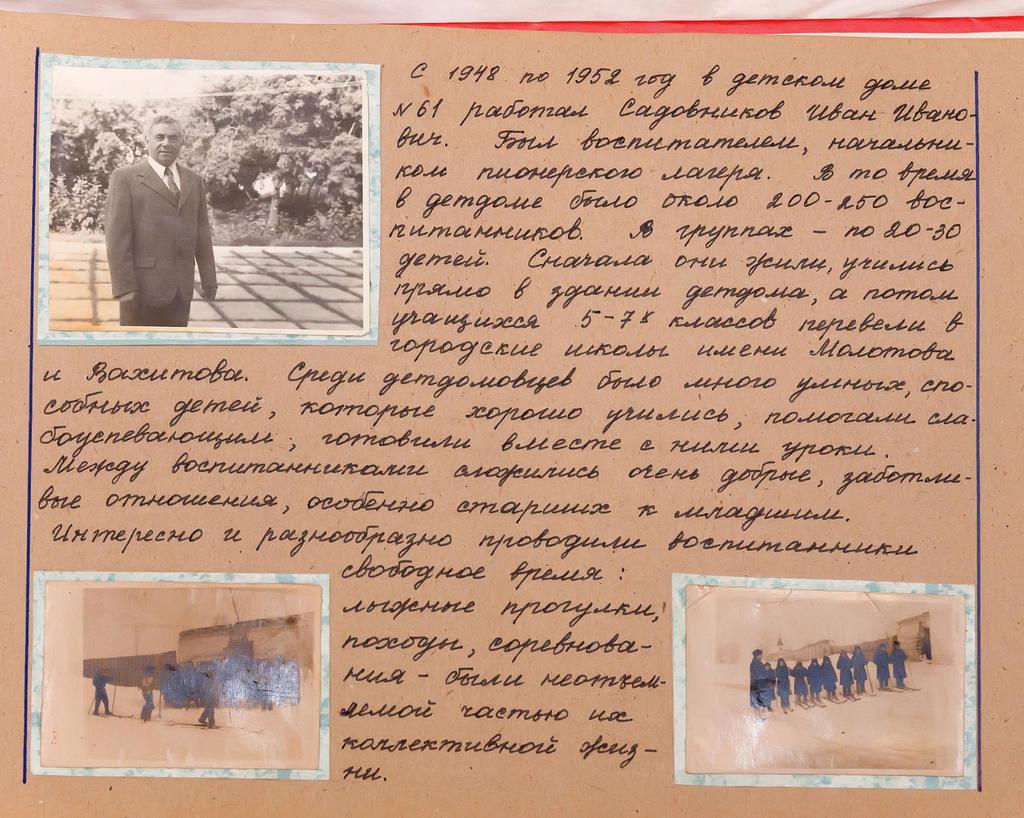 С 1948 по 1952 год в детском доме
N 61 работал Садовников Иван Ивано-
вич. Был воспитателем, начальни-
ком пионерского лагеря. В то время
в детдоме было около 200-250 вос-
питанников. В группах - по 20-30
детей. Сначала они жили, учились
прямо в здании детдома, а потом
учащихся 5-7х классов перевели в
городские школы имени Молотова
и Вахитова. Среди детдомовцев было много умных, спо-
собных детей, которые хорошо учились, помогали сла-
боуспевающим, готовили вместе с ними уроки.
Между воспитанниками сложились очень добрые, заботли-
вые отношения, особенно старших к младшим.
Интересно и разнообразно проводили воспитанники
свободное время:
лыжные прогулки,
походы, соревнова-
ния - были неотъем-
лемой частью их
коллективной жиз-
ни.